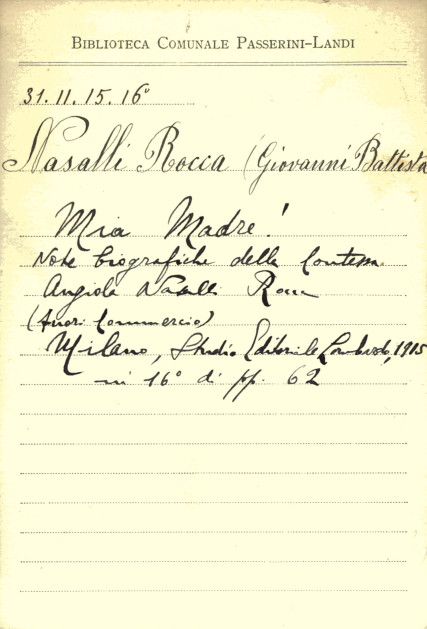 BIBLIOTECA COMUNALE PASSERINI-LANDI
31. 11. 15. 16º
Nasalli Rocca (Giovanni Battista
Mia Madre!
Note biografiche della Contessa
Angiola Nasalli Rocca
(Fuori Commercio)
Milano, Studio Editoriale Lombardo, 1915
in 16º di pp. 62